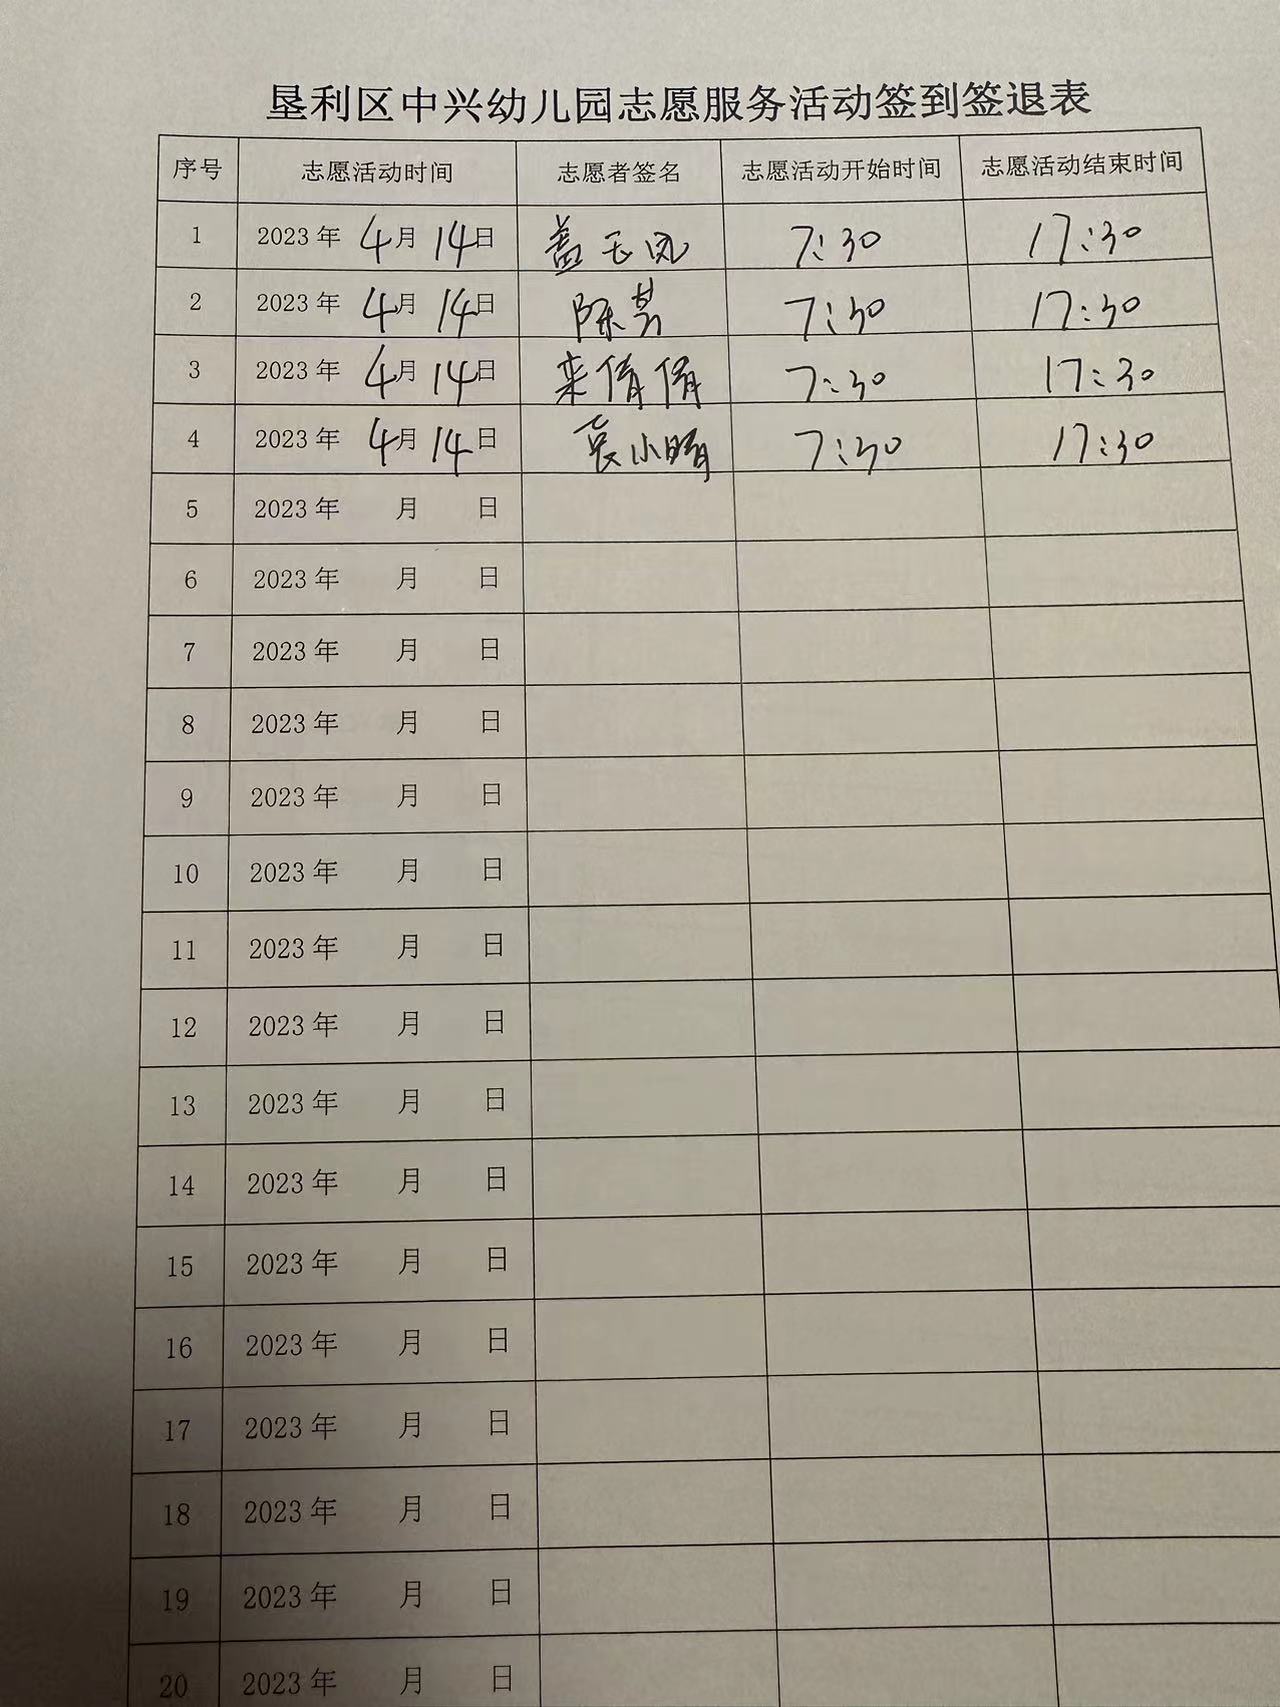 垦利区中兴幼儿园志愿服务活动签到签退表
序号 志愿活动时间 志愿者签名 志愿活动开始时间 志愿活动结束时间
1 2023年 4月 14日 盖玉凤 7:30 17:30
2 2023年 4月 14日 陈芳 7:30 17:30
3 2023年 4月 14日 栾倩倩 7:30 17:30
4 2023年 4月 14日 袁小晴 7:30 17:30
5 2023年 月 日
6 2023年 月 日
7 2023年 月 日
8 2023年 月 日
9 2023年 月 日
10 2023年 月 日
11 2023年 月 日
12 2023年 月 日
13 2023年 月 日
14 2023年 月 日
15 2023年 月 日
16 2023年 月 日
17 2023年 月 日
18 2023年 月 日
19 2023年 月 日
20 2023年 月 日